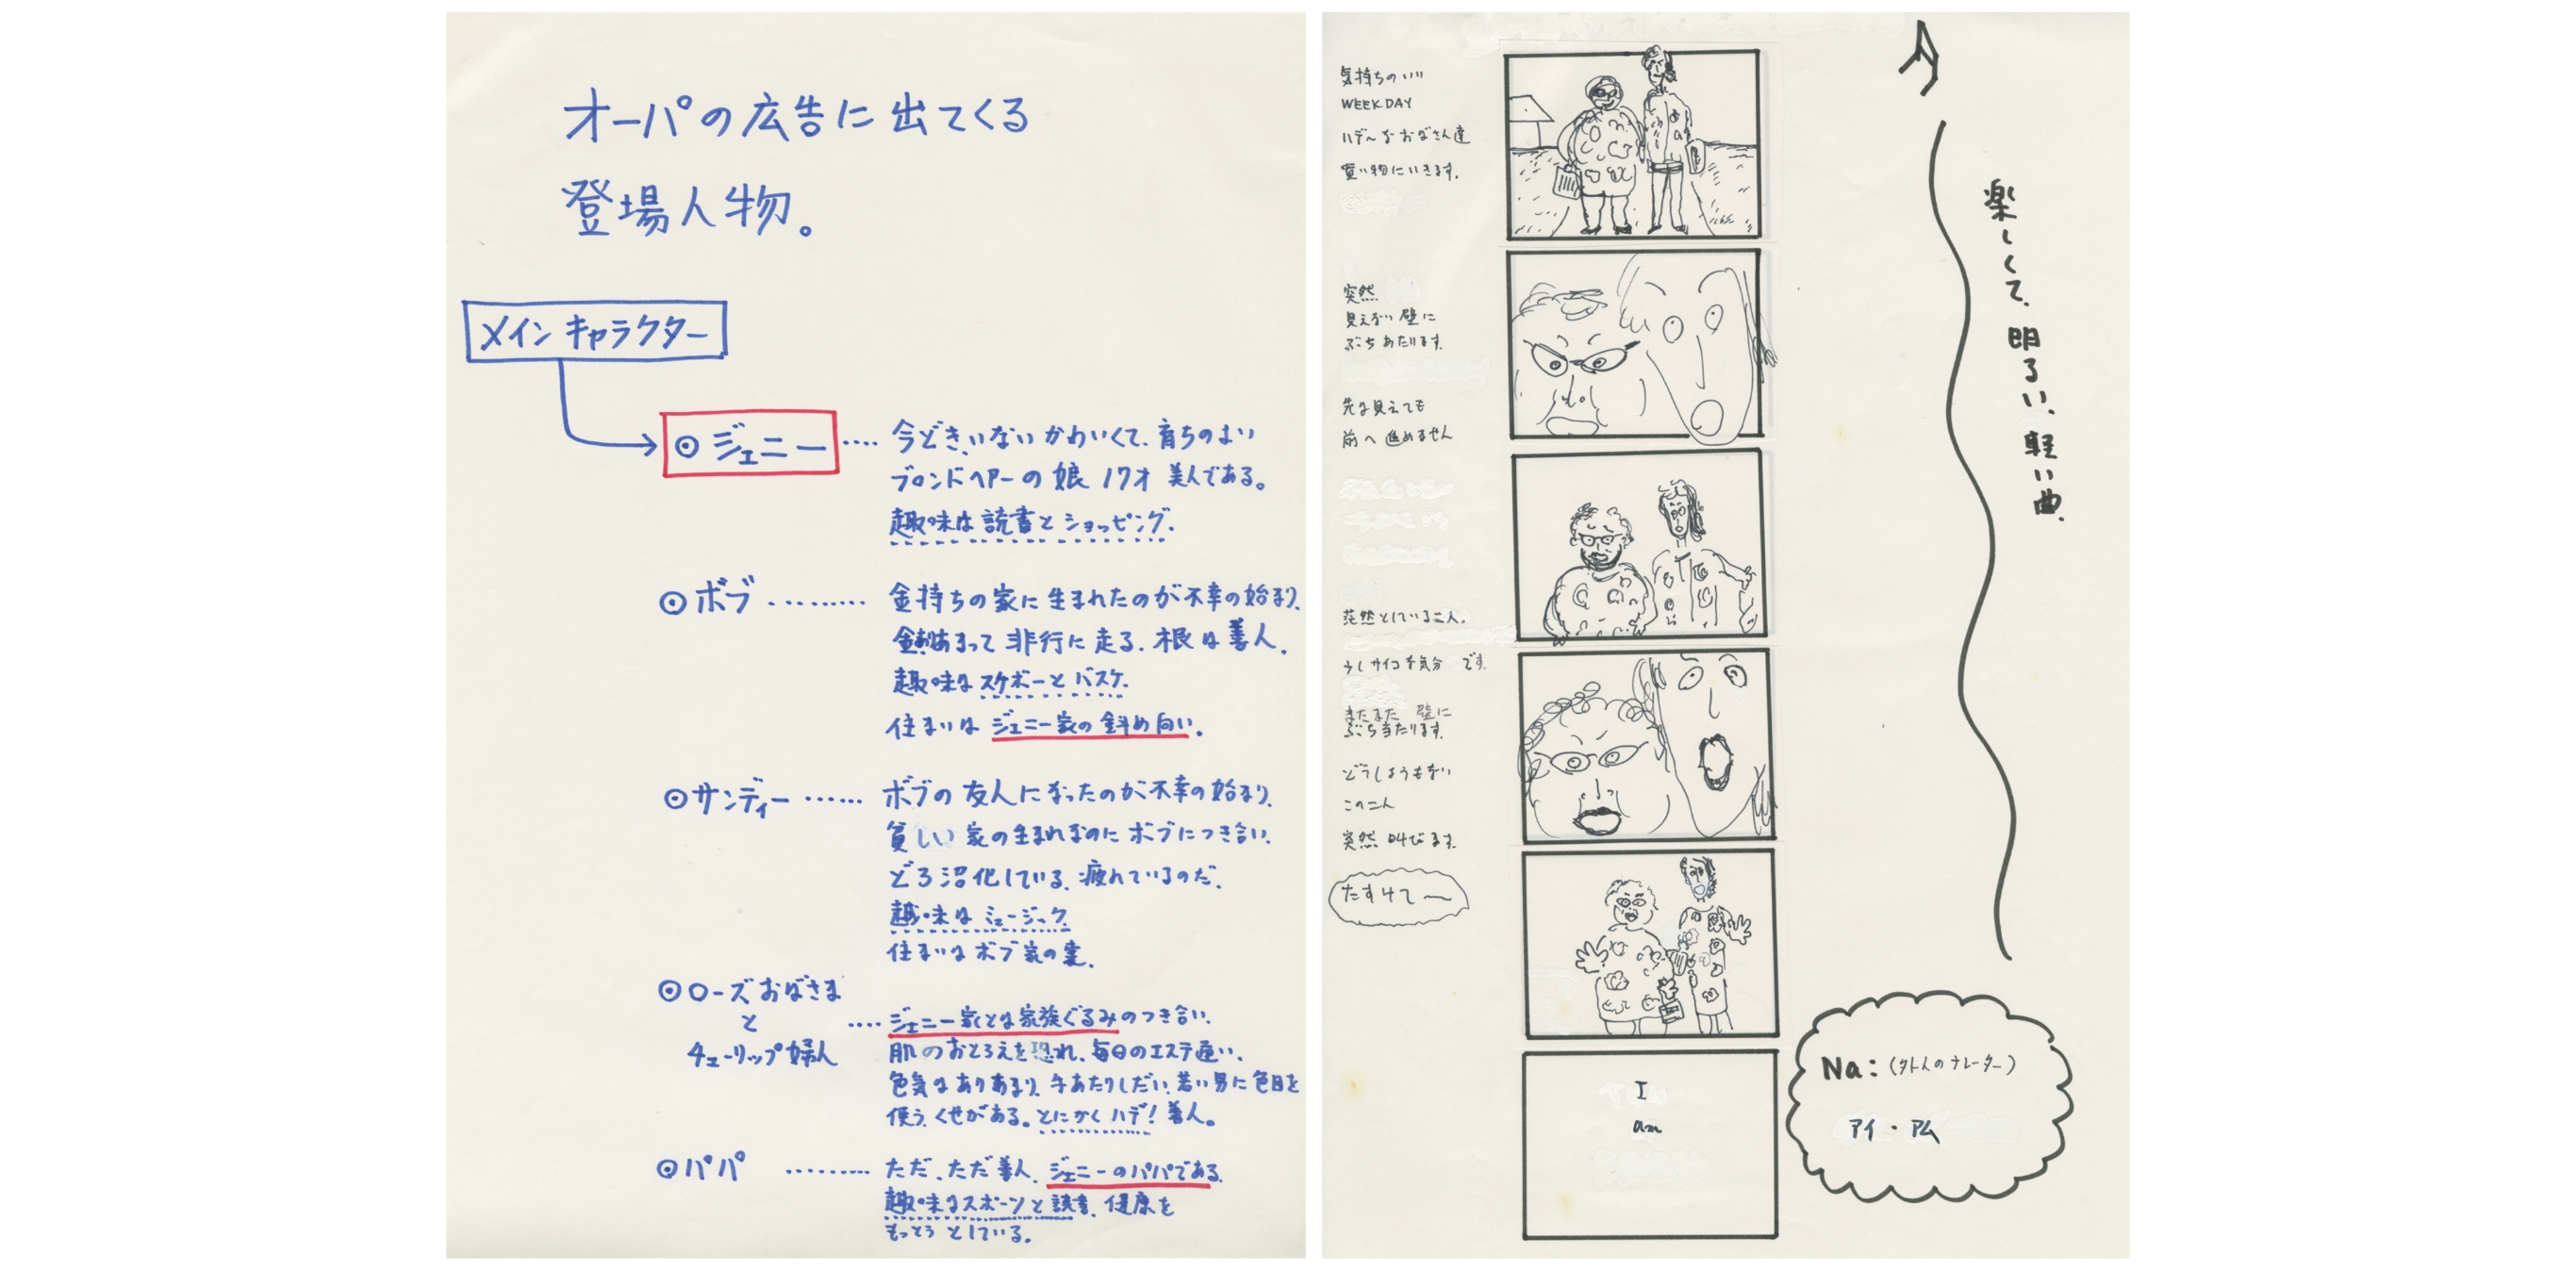 オーパの広告に出てくる
登場人物。
メインキャラクター
◎ジェニー ‥‥ 今どき、いないかわいくて、育ちのよい
ブロンドヘアーの娘 17才 美人である。
趣味は読書とショッピング。
◎ボブ ‥‥‥‥‥ 金持ちの家に生まれたのが不幸の始まり。
あまって非行に走る。根は善人。
趣味はスケボーとバスケ。
住まいはジェニー家の斜め向い。
◎サンディー ‥‥‥ ボブの友人になったのが不幸の始まり。
貧しい家の生まれなのにボブにつき合い、
どろ沼化している。疲れているのだ。
趣味はミュージック。
住まいはボブ家の裏。
◎ローズおばさま
と
チューリップ婦人
‥‥ジェニー家とは家族ぐるみのつき合い。
肌のおとろえを恐れ、毎日のエステ通い、
色気はありあまり、手あたりしだい、若い男に色目を
使うくせがある。とにかくハデ!善人。
◎パパ ‥‥‥‥‥ ただ、ただ善人。ジェニーのパパである。
趣味はスポーツと読書、健康を
もっとうとしている。
気持ちのいい
WEEKDAY
ハデ〜なおばさん達
買い物にいきます。
突然
見えない壁に
ぶちあたります。
先は見えても
前へ進めません
茫然としている二人。
少しサイコな気分です。
またまた 壁に
ぶち当たります。
どうしようもない
この二人
突然叫びます。
たすけて〜
I
am
楽しくて、明るい、軽い曲。
Na:(外人のナレーター)
アイ・アム